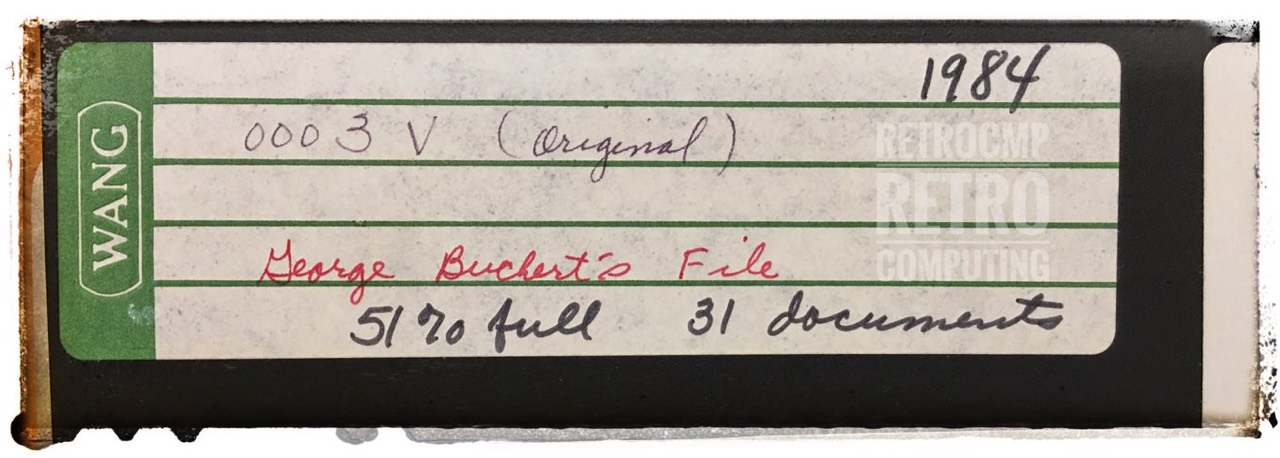 WANG
1984
0003 V (Original)
RETROCMP
RETRO
COMPUTING
George Buchert's File
51% full 31 documents